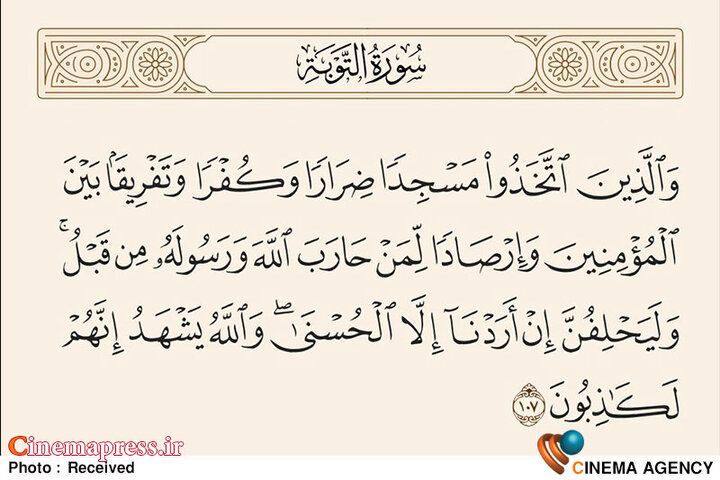 سُورَةُ التَّوۡبَةِ
وَٱلَّذِينَ ٱتَّخَذُواْ مَسۡجِدٗا ضِرَارٗا وَكُفۡرٗا وَتَفۡرِيقَۢا بَيۡنَ
ٱلۡمُؤۡمِنِينَ وَإِرۡصَادٗا لِّمَنۡ حَارَبَ ٱللَّهَ وَرَسُولَهُۥ مِن قَبۡلُۚ
وَلَيَحۡلِفُنَّ إِنۡ أَرَدۡنَآ إِلَّا ٱلۡحُسۡنَىٰۖ وَٱللَّهُ يَشۡهَدُ إِنَّهُمۡ
لَكَٰذِبُونَ ١٠٧
Cinemapress.ir
Photo : Received
CINEMA AGENCY